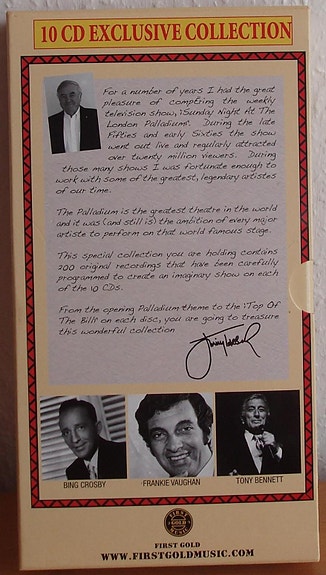 10 CD EXCLUSIVE COLLECTION
For a number of years I had the great
pleasure of compèring the weekly
television show, 'Sunday Night At The
London Palladium'. During the late
Fifties and early Sixties the show
went out live and regularly attracted
over twenty million viewers. During
those many shows I was fortunate enough to
work with some of the greatest, legendary artistes
of our time.
The Palladium is the greatest theatre in the world
and it was (and still is) the ambition of every major
artiste to perform on that world famous stage.
This special collection you are holding contains
200 original recordings that have been carefully
programmed to create an imaginary show on each
of the 10 CDs.
From the opening Palladium theme to the 'Top Of
The Bill' on each disc, you are going to treasure
this wonderful collection
BING CROSBY
FRANKIE VAUGHAN
TONY BENNETT
FIRST
GOLD
MUSIC
FIRST GOLD
WWW.FIRSTGOLDMUSIC.COM